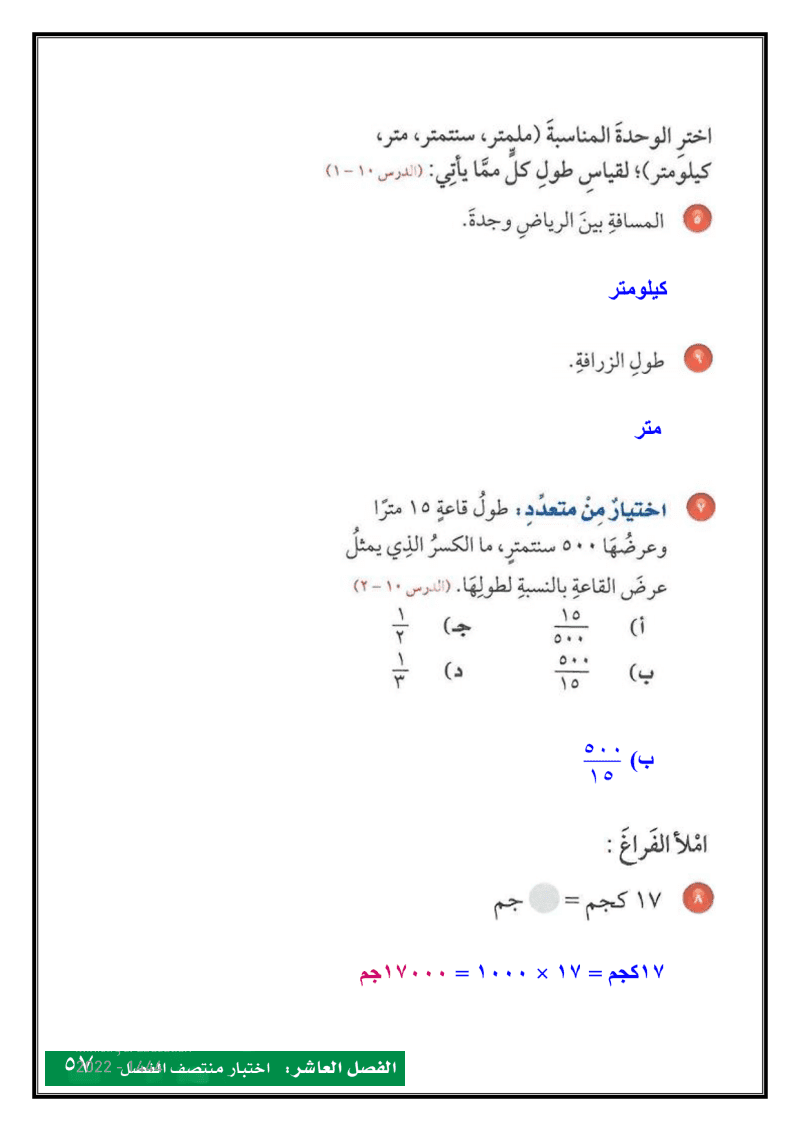 اخترِ الوحدةَ المناسبةَ (ملمتر، سنتمتر، متر،
كيلومتر)؛ لقياسِ طولِ كلٍّ ممَّا يأتِي: (الدرس ١٠ – ١)
٥ المسافةِ بينَ الرياضِ وجدةَ.
كيلومتر
٦ طولِ الزرافةِ.
متر
٧ اختيارٌ مِنْ متعدِّدٍ: طولُ قاعةٍ ١٥ مترًا
وعرضُهَا ٥٠٠ سنتمترٍ، ما الكسرُ الذِي يمثلُ
عرضَ القاعةِ بالنسبةِ لطولِهَا. (الدرس ١٠ – ٢)
أ) ١٥/٥٠٠ جـ) ١/٢
ب) ٥٠٠/١٥ د) ١/٣
ب) ٥٠٠/١٥
امْلأ الفَراغَ :
٨ ١٧ كجم = جم
١٧كجم = ١٧ × ١٠٠٠ = ١٧٠٠٠جم
الفصل العاشر: اختبار منتصف الفصل ٥٧
2022 - 1444